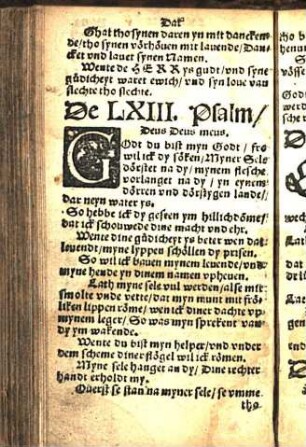 Dat
Ghat tho synen daren yn mit danckem
de / tho synen vörhöuen mit lauende / Dan
cket vnd lauet synen Namen.
Wente de HERR ys gudt / vnd syne
güdicheyt waret ewich / vnd syn loue van
slechte tho slechte.
De LXIII. Psalm /
Deus Deus meus.
GOdt du bist myn Godt / fro
wil ick dy söken / Myner Sele
dörstet na dy / mynem flesche
vorlanget na dy / yn eynem
dörren vnd dörstygen lande /
dar neyn water ys.
So hebbe ick dy geseen ym hillichdöme /
dat ick schouwede dine macht vnd ehr.
Wente dine güdicheyt ys beter wen dat
leuendt / myne lyppen schöllen dy prisen.
So wil ick lauen mynem leuende / vnd
myne hende yn dinem namen vpheuen.
Lath myne sele vul werden / alse mit
smolte vnde vette / dat myn munt mit frö-
liken lippen röme / wen ick diner dachte vp
mynem leger / So was myn sprekent van
dy ym wakende.
Wente du bist myn helper / vnd vnder
dem scheme diner flögel wil ick römen.
Myne sele hanget an dy / Dine rechter
handt erholdt my.
Ouerst se stan na myner sele / se vmme
tho